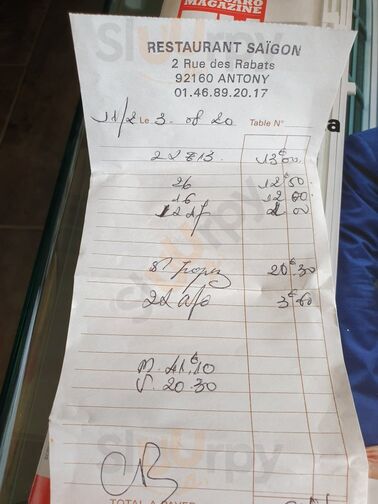 MAGAZINE
RESTAURANT SAÏGON
2 Rue des Rabats
92160 ANTONY
01.46.89.20.17
11/2 Le 3. 08 20 Table N°
13€00
26 12 50
16 12 00
St Tropez 20.30
3€60
M. 41€10
20.30
CB
TOTAL A PAYER